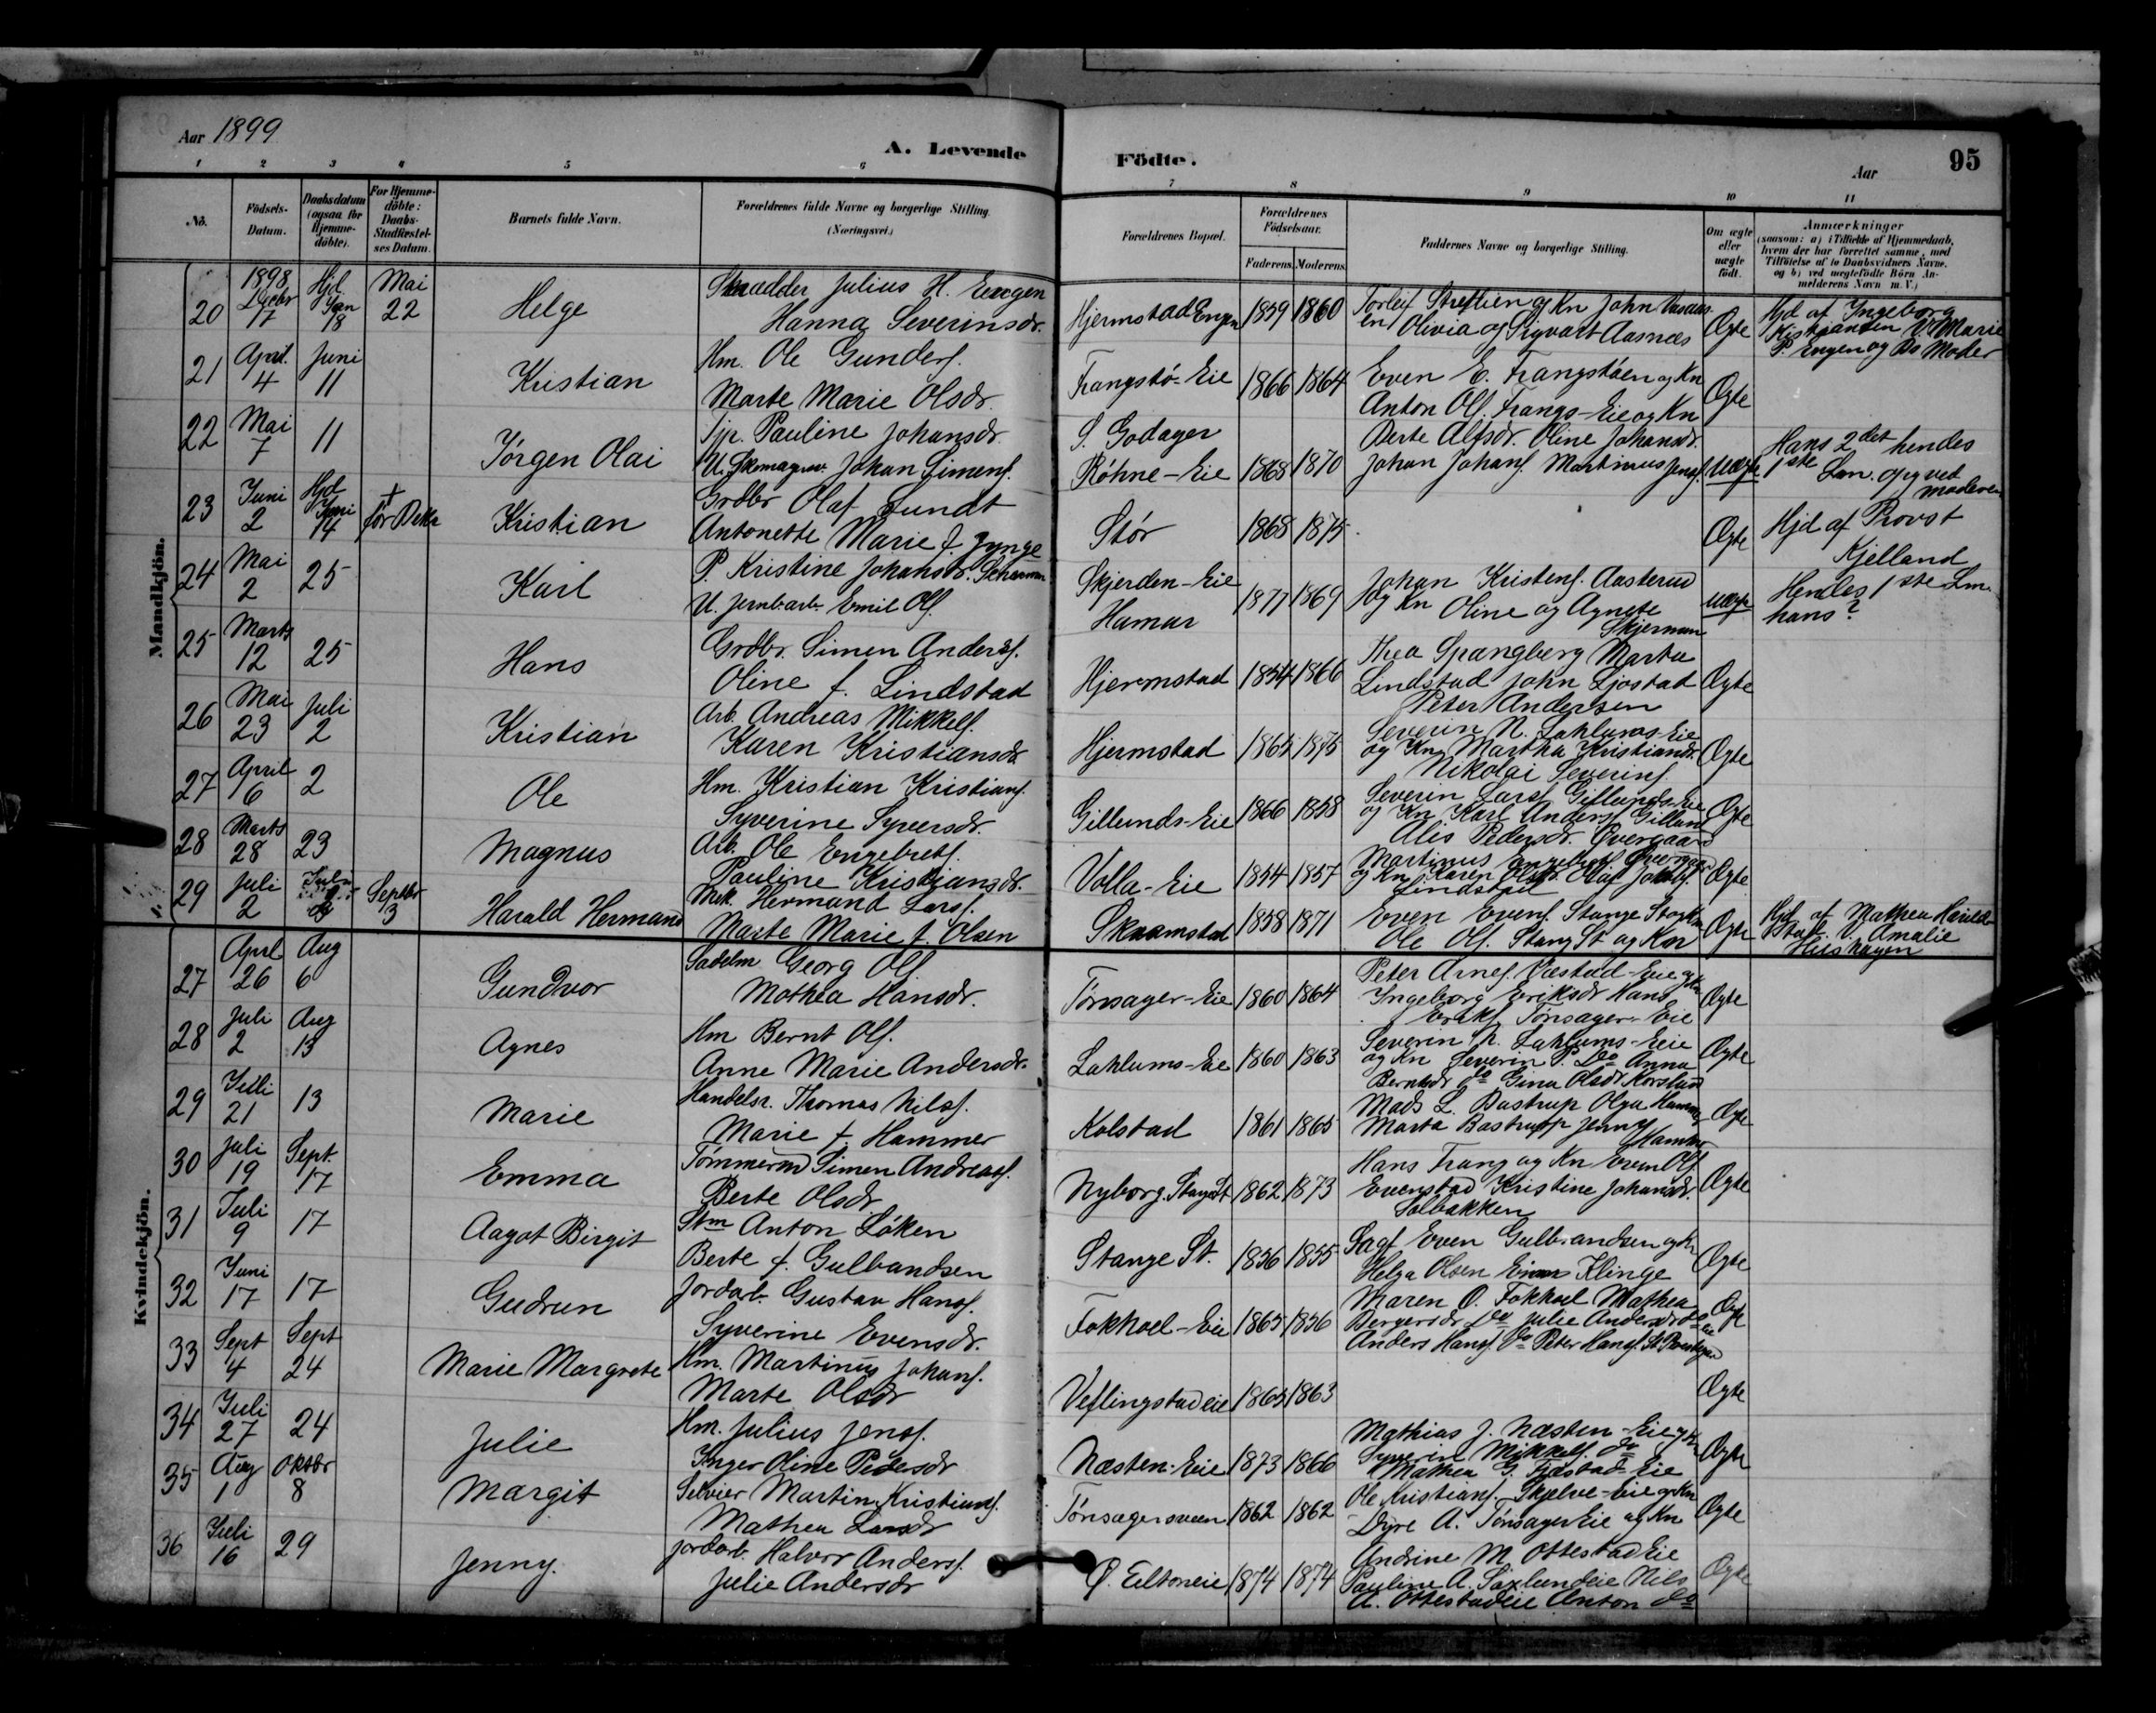 Aar 1899
A. Levende
Födte.
Aar
95
1 2 3 4 5 6 7 8 9 10 11
No.
Födsels-Datum.
Daabsdatum (ogsaa for Hjemme-döbte).
For Hjemme-döbte: Daabs-Stadfæstel-ses Datum.
Barnets fulde Navn.
Forældrenes fulde Navne og borgerlige Stilling.
(Næringsvei.)
Forældrenes Bopæl.
Forældrenes Födselsaar.
Faderens. Moderens.
Faddernes Navne og borgerlige Stilling.
Om ægte eller uægte födt.
Anmærkninger
(saasom: a) i Tilfælde af Hjemmedaab, hvem der har forrettet samme, med Tilföielse af to Daabsvidners Navne, og b) ved uægtefödte Börn An-melderens Navn m. V.)
Mandkjön.
20 1898 Decbr 17 Hjd Jan 18 Mai 22 Helge
Skrædder Julius H. Engen
Hanna Severinsdr.
Hjermstad Engen 1859 1860
Olivia og Sigvart Aasnæs
Ægte
Hjd af Ingeborg
Kristiansen V. Marie
P. Engen og Bs Moder
21 April 4 Juni 11 Kristian
Hm. Ole Gunders.
Marte Marie Olsdr.
Frangstö-Eie 1866 1864
Even E. Frangstöen og Kn
Anton Ols. Frangs-Eie og Kn
Ægte
22 Mai 7 11 Jörgen Olai
Tjp. Pauline Johansdr.
U. Skomagersv. Johan Simens.
S. Godager
Röhne-Eie 1868 1870
Berte Alfsdr. Oline Johansdr.
Johan Johans. Martinius Jens.
Uægte
Hans 2det hendes
1ste Lm. opg ved
moderen
23 Juni 2 Hjd Juni 14 † för Bekr Kristian
Grdbr Olaf Lundt
Antonette Marie f. Gynge
Stör 1868 1875
Ægte
Hjd af Provst
Kjelland
24 Mai 2 25 Karl
P. Kristine Johansdr.
U. Jernb.arb. Emil Ols.
Skjerden-Eie
Hamar 1877 1869
Johan Kristens. Aasterud
og Kn Oline og Agnete
Skjerman
Uægte
Hendes 1ste Lm.
hans?
25 Marts 12 25 Hans
Grdbr. Simen Anders.
Oline f. Lindstad
Hjermstad 1854 1866
Thea Spangberg Marta
Lindstad John Ljostad
Peter Andersen
Ægte
26 Mai 23 Juli 2 Kristian
Arb. Andreas Mikkels.
Karen Kristiansdr.
Hjermstad 1865 1875
Severin N. Lahlums-Eie
og Kn Martha Kristiansdr.
Nikolai Severins.
Ægte
27 April 6 2 Ole
Hm. Kristian Kristians.
Syverine Syversdr.
Gillunds-Eie 1866 1858
Severin Lars. Gillunds-Eie
og Kn Karl Anders. Gillund
Alis Pedersdr. Övergaard
Ægte
28 Marts 28 23 Magnus
Arb. Ole Engebrets.
Pauline Kristiansdr.
Volla-Eie 1854 1857
Martinus Engebrets. Övergaard
og Kn Karen Olsdr. Olaf
Lindstad
Ægte
29 Juli 2 Septbr 3 Harald Hermann
Mek. Hermand Lars.
Marte Marie f. Olsen
Skaamstad 1858 1871
Even Evens. Stange St og Kn
Ole Ols. Stang St og Kn
Ægte
Hjd af Mathea
V. Amalie
Hushagen
Kvindekjön.
27 April 26 Aug 6 Gundvor
Sadelm Georg Ols.
Mathea Hansdr.
Tönsager-Eie 1860 1864
Peter Arnes. Væstad-Eie og Kn
Ingeborg Eriksdr Hans
Eriks. Tönsager-Eie
Ægte
28 Juli 2 Aug 13 Agnes
Hm Bernt Ols.
Anne Marie Andersdr.
Lahlums-Eie 1860 1863
Severin N. Lahlums-Eie
og Kn Severin P. Do Anna
Berntsdr do Gina Olsdr Korslund
Ægte
29 Juli 21 13 Marie
Handelsr. Thomas Nils.
Marie f. Hammer
Kolstad 1861 1865
Mads L. Bastrup Olga Hammer
Marta Bastrupp Jenny
Hammer
Ægte
30 Juli 19 Sept. 17 Emma
Tömmermd Simen Andreas.
Berte Olsdr
Nyborg. Stange St 1862 1873
Hans Frang og Kn Even Ols.
Evenstad Kristine Johansdr.
Solbakken
Ægte
31 Juli 9 17 Aagot Birgit
Stm Anton Löken
Berte f. Gulbandsen
Stange St. 1856 1855
Sagf Even Gulbrandsen og Kn
Helga Olsen Einar Klinge
Ægte
32 Juni 17 17 Gudrun
Jordarb. Gustav Hans.
Syverine Evensdr.
Fokhoel-Eie 1865 1856
Maren O. Fokhoel Mathea
Bergersdr Do Julie Andersdr do Eie
Anders Hans. Do Peter Hans. St. Prestegd
Ægte
33 Sept 4 Sept 24 Marie Margrete
Hm. Martinus Johans.
Marte Olsdr
Veflingstadeie 1865 1863
Ægte
34 Juli 27 24 Julie
Hm. Julius Jens.
Inger Oline Pedersdr
Næsten-Eie 1873 1866
Mathias J. Næsten-Eie og Kn
Syverin Mikkels do
Mathea G. Fjæstad-Eie
Ægte
35 Aug 1 Oktbr 8 Margit
Selveier Martin Kristians.
Mathea Larsdr
Tönsagersveen 1862 1862
Ole Kristians. Skjelve-Eie og Kn
Dyre A. Tönsager Eie og Kn
Ægte
36 Juli 16 29 Jenny.
Jordarb. Halvor Anders.
Julie Andersdr
Ö. Eltoneie 1874 1874
Andrine M. Ottestad Eie
Pauline A. Saxlundeie Nils
A. Ottestadeie Anton do
Ægte